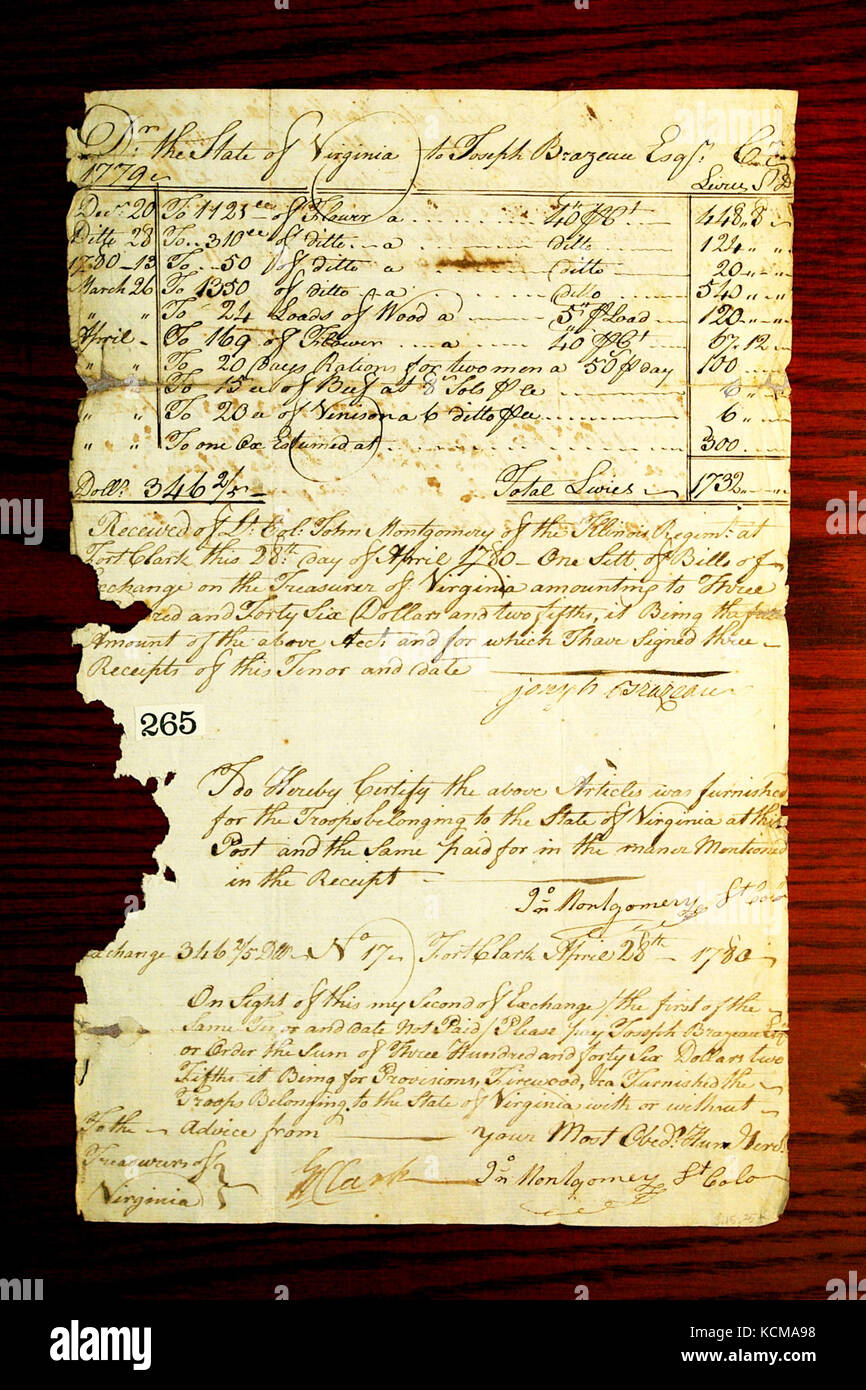 Dr. the State of Virginia to Joseph Brazeau Esqr. Cr.
1779 Livres S D
Decr. 20 To 1121 of Flower a 40 ₶ Ct 448 „ 8
Ditto 28 To 310 of ditto a ditto 124 „ „
1780 - 13 To 50 of ditto a ditto 20 „ „
March 26 To 1350 of ditto a ditto 540 „ „
„ „ To 24 Loads of Wood a 5 Load 120 „ „
April To 169 of Flower a 40 Ct 67 „ 12
„ „ To 20 Days Rations for two men a 50 day 100
To 15 of Beef at 8 Sols 6 „
„ „ To 20 of Venison a 6 ditto 6 „
„ „ To one Ox Estumed at 300
Dolls. 346 2/5 Total Livres 1732
Received of Lt. Col. John Montgomery of the Illinois Regimt. at
Fort Clark this 28th day of April 1780 - One Sett of Bills of
Exchange on the Treasurer of Virginia amounting to Three
dred and Forty Six Dollars and two fifths, it Being the full
Amount of the above Acct. and for which I have Signed three
Receipts of this Tenor and date
Joseph Brazeau
265
I do Hereby Certify the above Articles was furnished
for the Troops belonging to the State of Virginia at this
Post and the Same paid for in the maner Mentioned
in the Receipt
Jno Montgomery Lt Colo
xchange 346 2/5 Dllr No 17 Fort Clark April 28th 1780
On Sight of this my Second of Exchange / the first of the
Same Tenor and date Not Paid / Please pay Joseph Brazeau Esqr
or Order the Sum of Three Hundred and forty Six Dollars two
Fifths it Being for Provisions, Firewood, &ca Furnished the
Troops Belonging to the State of Virginia with or without
To the Advice from Your Most Obedt. Hum Servt.
Treasurer of
Virginia
G R Clark Jno Montgomery Lt Colo
alamy
Image ID: KCMA98
www.alamy.com